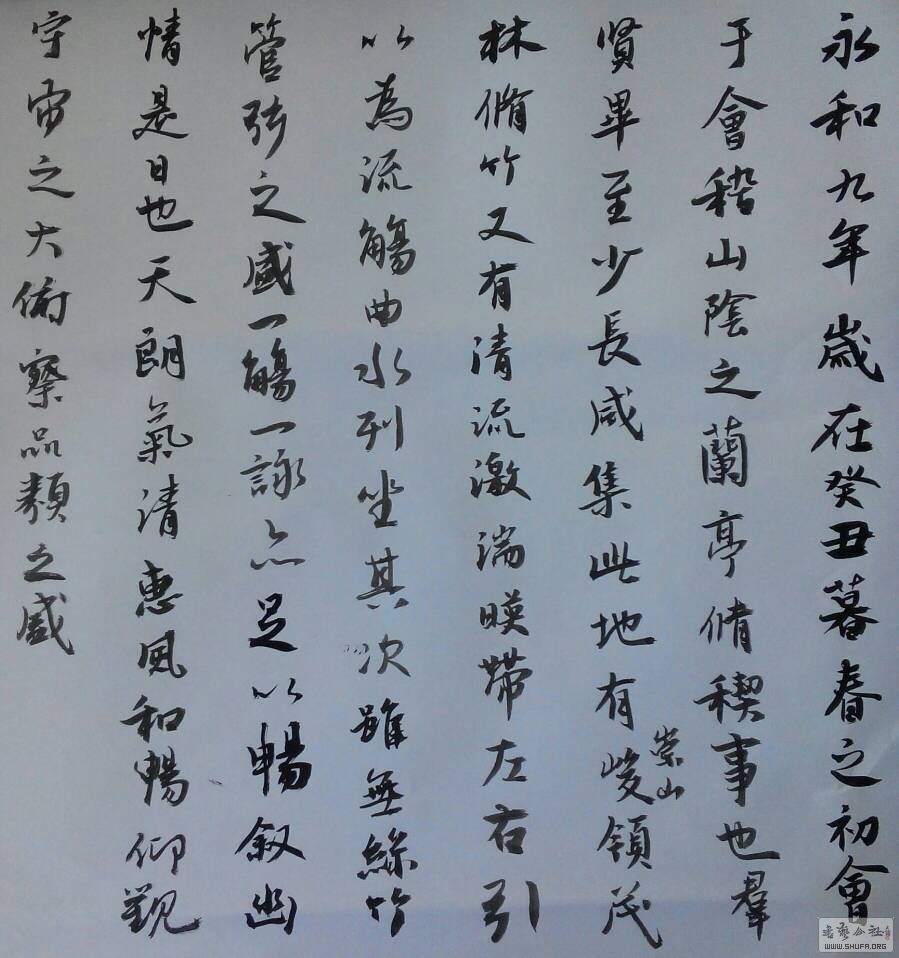 永和九年歲在癸丑暮春之初會
于會稽山陰之蘭亭脩稧事也羣
賢畢至少長咸集此地有峻領茂
崇山
林脩竹又有清流激湍暎帶左右引
以為流觴曲水列坐其次雖無絲竹
管弦之盛一觴一詠亦足以暢叙幽
情是日也天朗氣清惠風和暢仰觀
宇宙之大俯察品類之盛
书法公社
WWW.SHUFA.ORG